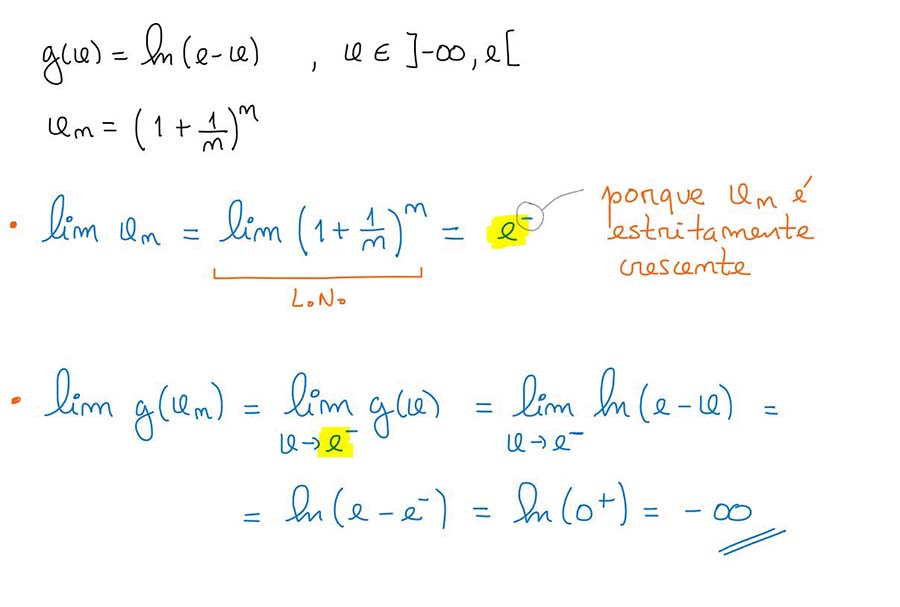 g(x) = ln(e-x) , x ∈ ]-∞, e[
x_n = (1 + 1/n)^n
• lim x_n = lim (1 + 1/n)^n = e^-
porque x_n é
estritamente
crescente
L.N.
• lim g(x_n) = lim_{x→e^-} g(x) = lim_{x→e^-} ln(e-x) =
= ln(e - e^-) = ln(0^+) = -∞